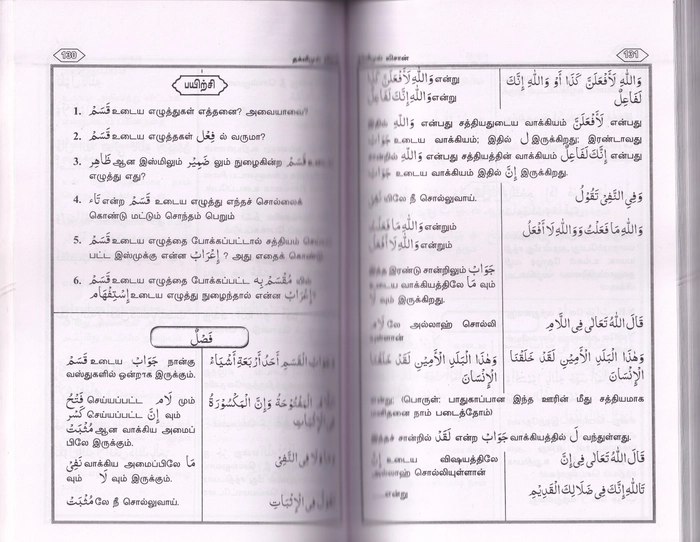 130
தக்வீமுல்
பயிற்சி
1. قَسَمْ உடைய எழுத்துகள் எத்தனை? அவையாவை?
2. قَسَمْ உடைய எழுத்தகள் فِعْل ல் வருமா?
3. ظَاهِر ஆன இஸ்மிலும் ضَمِيْر லும் நுழைகின்ற قَسَمْ
எழுத்து எது?
4. تَاء என்ற قَسَمْ உடைய எழுத்து எந்தச் சொல்லைக்
கொண்டு மட்டும் சொந்தம் பெறும்
5. قَسَمْ உடைய எழுத்தை போக்கப்பட்டால் சத்தியம்
பட்ட இஸ்முக்கு என்ன إِعْرَابْ ? அது எதைக்
6. قَسَمْ உடைய எழுத்தை போக்கப்பட்ட مُقْسَمْ بِهِ
إِسْتِفْهَامْ உடைய எழுத்து நுழைந்தால் என்ன إِعْرَابْ
فَصْلٌ
قَسَمْ உடைய جَوَابْ நான்கு
வஸ்துகளில் ஒன்றாக இருக்கும்.
الْقَسَمِ أَحَدُ أَرْبَعَةِ أَشْيَاءَ
فَتْحْ செய்யப்பட்ட لَامْ மும்
كَسْر செய்யப்பட்ட إِنَّ வும்
مُثْبَتْ ஆன வாக்கிய அமைப்
பிலே இருக்கும்.
الْمَفْتُوْحَةُ وَإِنَّ الْمَكْسُوْرَةُ
نَفِيْ வாக்கிய அமைப்பிலே مَا
வும் لَا வும் இருக்கும்.
فِي النَّفْيِ
مُثْبَتْ லே நீ சொல்லுவாய்.
فِي الْإِثْبَاتِ
லிஸான்
131
وَاللهِ لَأَفْعَلَنَّ كَذَا என்று
وَاللهِ إِنَّكَ لَفَاعِلٌ என்று
وَاللهِ لَأَفْعَلَنَّ كَذَا أَوْ وَاللهِ إِنَّكَ
لَفَاعِلٌ
இதில் وَاللهِ என்பது சத்தியதுடைய வாக்கியம் لَأَفْعَلَنَّ என்பது
உடைய வாக்கியம்; இதில் ل இருக்கிறது; இரண்டாவது
சான்றில் وَاللهِ என்பது சத்தியத்தின் வாக்கியம் إِنَّكَ لَفَاعِلٌ என்பது
உடைய வாக்கியம் இதில் إِنَّ இருக்கிறது.
யிலே நீ சொல்லுவாய்.
وَفِي النَّفْيِ تَقُوْلُ
وَاللهِ مَا فَعَلْتُ என்றும்
وَاللهِ لَا أَفْعَلُ என்றும்
وَاللهِ مَا فَعَلْتُ وَوَاللهِ لَا أَفْعَلُ
இந்த இரண்டு சான்றிலும் جَوَابْ
உடைய வாக்கியத்திலே مَا வும்
لَا வும் இருக்கிறது.
லே அல்லாஹ் சொல்லி
யுள்ளான்
قَالَ اللهُ تَعَالَى فِي اللَّامِ
وَهٰذَا الْبَلَدِ الْأَمِيْنِ لَقَدْ خَلَقْنَا
الْإِنْسَانَ
وَهٰذَا الْبَلَدِ الْأَمِيْنِ لَقَدْ خَلَقْنَا
الْإِنْسَانَ
என்று; (பொருள்: பாதுகாப்பான இந்த ஊரின் மீது சத்தியமாக
மனிதனை நாம் படைத்தோம்)
இந்தச் சான்றில் لَقَدْ என்ற جَوَابْ வாக்கியத்தில் ل வந்துள்ளது.
إِنَّ உடைய விஷயத்திலே
அல்லாஹ் சொல்லியுள்ளான்
قَالَ اللهُ تَعَالَى فِي إِنَّ
என்று
تَاللهِ إِنَّكَ فِي ضَلَالِكَ الْقَدِيْمِ